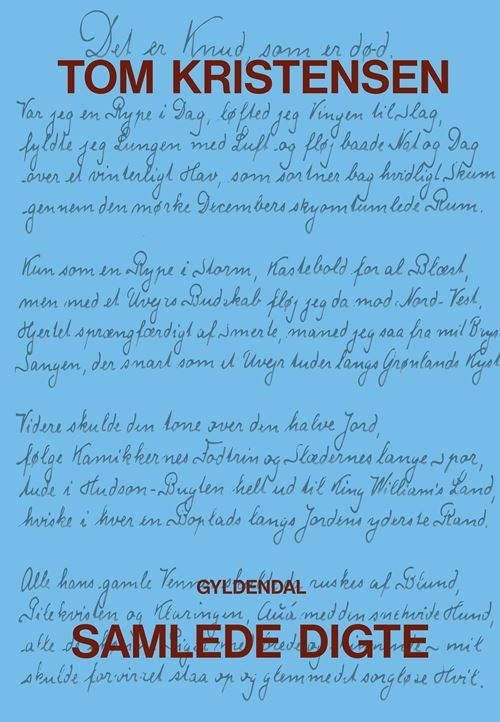 Det er Knud, som er død.
TOM KRISTENSEN
Var jeg en Rype i Dag, løfted jeg Vingen til Slag,
fyldte jeg Lungen med Luft og fløj baade Nat og Dag
over et vinterligt Hav, som sortner bag hvidligt Skum
gennem den mørke Decembers skyomtumlede Rum.
Kun som en Rype i Storm, Kastebold for al Blæst,
men med et Uvejrs Budskab fløj jeg da mod Nord-Vest,
Hjertet sprængfærdigt af Smerte, maned jeg saa fra mit Brys
Sangen, der snart som et Uvejr tuder langs Grønlands Kyst
Videre skulde den tone over den halve Jord,
følge Kamikkernes Fodtrin og Slædernes lange Spor,
tude i Hudson-Bugten helt ud til King William's Land
hviske i hver en Boplads langs Jordens yderste Rand.
Alle hans gamle Venner ruskes af Blund,
GYLDENDAL
Pilekvisten og Kæringen, Auá med den snehvide Hund,
alle
SAMLEDE DIGTE
skulde forvirret staa op og glemme det sorgløse Hvil.